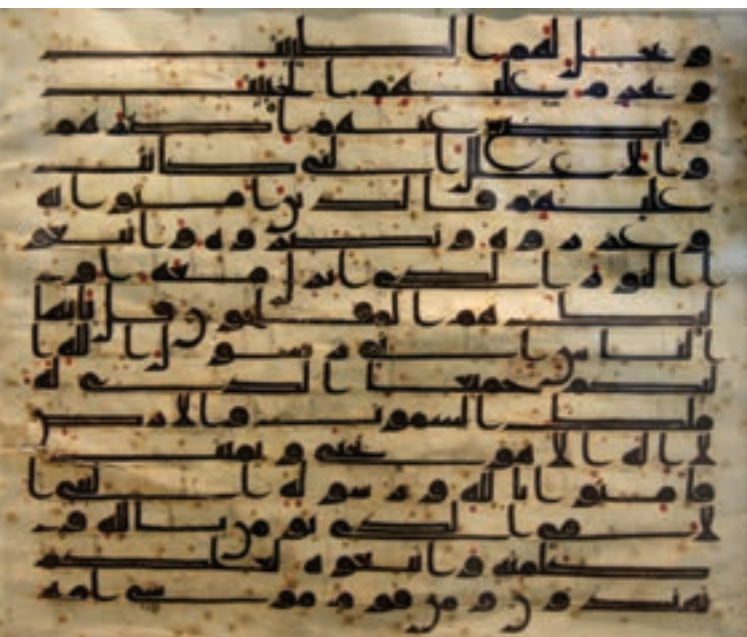 و يحل لهم الطيبت
و يحرم عليهم الخبئث
و يضع عنهم اصرهم
و الاغلل التى كانت
عليهم فالذين امنوا به
و عزروه و نصروه و اتبعو
ا النور الذى انزل معه او
لئك هم المفلحون قل يايها
الناس انى رسول الله ا
ليكم جميعا الذى له
ملك السموت و الارض
لا اله الا هو يحيى و يميت
فامنوا بالله و رسوله النبى ا
لامى الذى يومن بالله و
كلمته و اتبعوه لعلكم
تهتدون و من قوم موسى امه